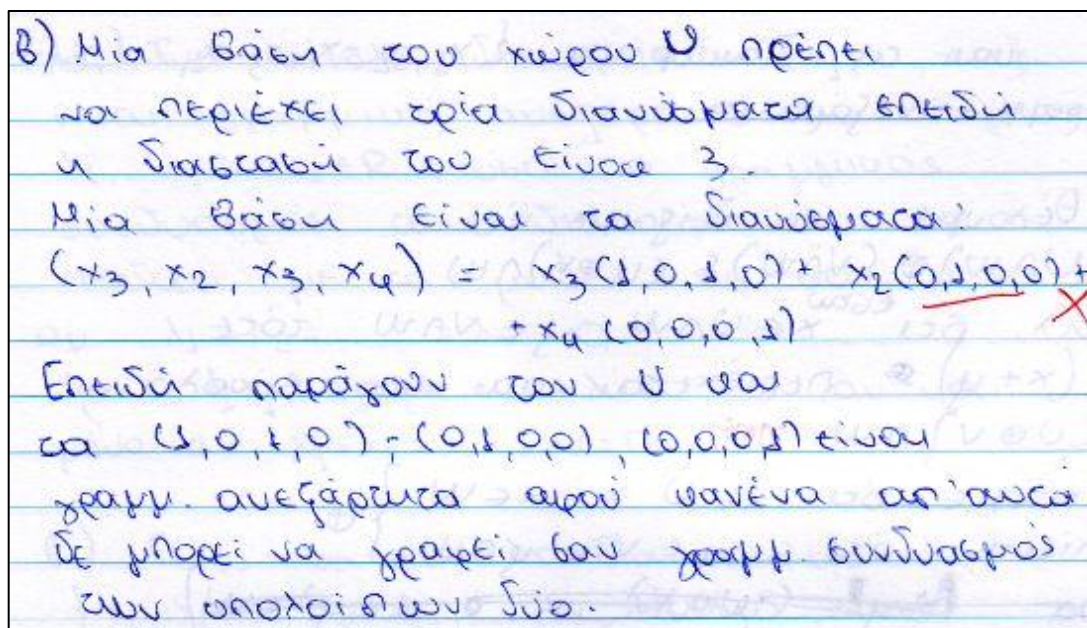 β) Μία βάση του χώρου U πρέπει
να περιέχει τρία διανύσματα επειδή
η διάσταση του είναι 3.
Μία βάση είναι τα διανύσματα
(x₃, x₂, x₃, x₄) = x₃(1,0,1,0) + x₂(0,1,0,0) +
+ x₄(0,0,0,1)
Επειδή παράγουν τον U και
τα (1,0,1,0), (0,1,0,0), (0,0,0,1) είναι
γραμμ. ανεξάρτητα αφού κανένα απ' αυτά
δε μπορεί να γραφεί σαν γραμμ. συνδυασμός
των υπολοίπων δύο.